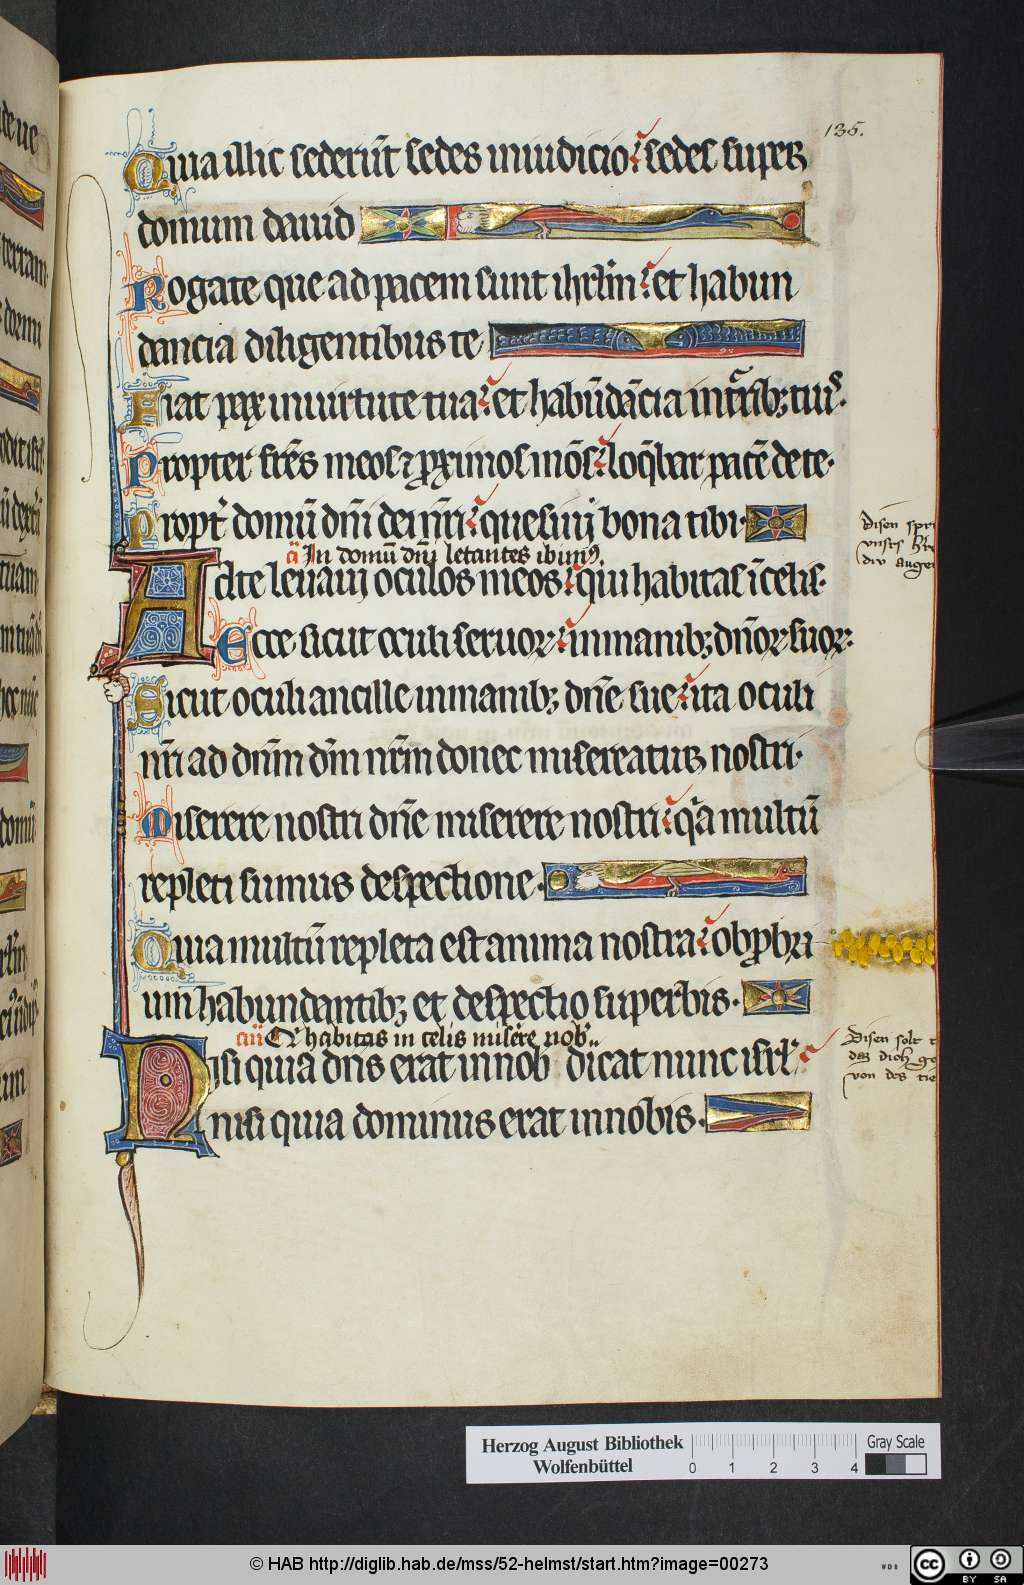 135.
Quia illic sederūt sedes iniudicio: sedes super
domum dauid
Rogate que ad pacem sunt ihrl'm: et habun
dancia diligentibus te
Fiat pax inuirtute tua: et habūdācia inturribꝫ tuis.
Propter fr̄es meos ⁊ ꝓximos mōs: loq̄bar pacē de te.
Propt' domū dn̄i dei nr̄i: quesiui bona tibi.
In domū dn̄i letantes ibimꝰ
Ad te leuaui oculos meos: qui habitas ī celis.
Ecce sicut oculi seruoꝝ: inmanibꝫ dn̄oꝝ suoꝝ.
Sicut oculi ancille inmanibꝫ dn̄e sue: ita oculi
nr̄i ad dn̄m dm̄ nr̄m donec misereatur nostri.
Miserere nostri dn̄e miserere nostri: q̄a multū
repleti sumus despectione.
Quia multū repleta est anima nostra: obꝓbri
um habundantibꝫ et despectio superbis.
Qͥ habitas in celis miserere nob̄
Nisi quia dn̄s erat innob̄ dicat nunc isrl'
nisi quia dominus erat innobis.
Disen
vnsers
div auge
Disen solt
daz dich
von des
Herzog August Bibliothek
Wolfenbüttel
0 1 2 3 4
Gray Scale
© HAB http://diglib.hab.de/mss/52-helmst/start.htm?image=00273
WDB
cc BY SA